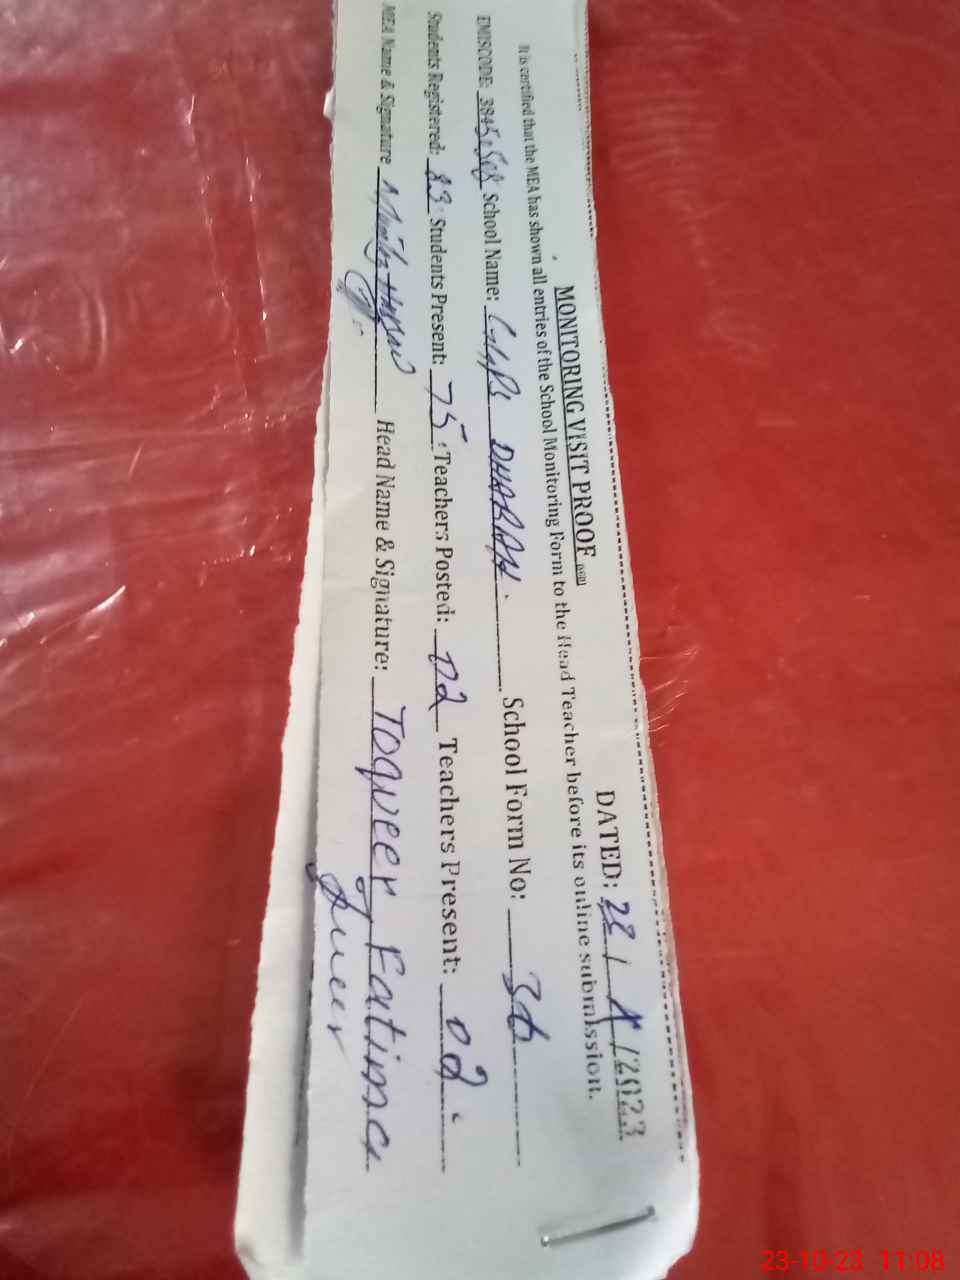 MONITORING VISIT PROOF DATED: 23 / X / 2023
It is certified that the MEA has shown all entries of the School Monitoring Form to the Head Teacher before its online submission.
EMISCODE: School Name: DHABAH. School Form No: 36
Students Registered: 83 Students Present: 75 Teachers Posted: 02 Teachers Present: 02
MEA Name & Signature Head Name & Signature: Toqeer Fatima
23-10-23 11:08